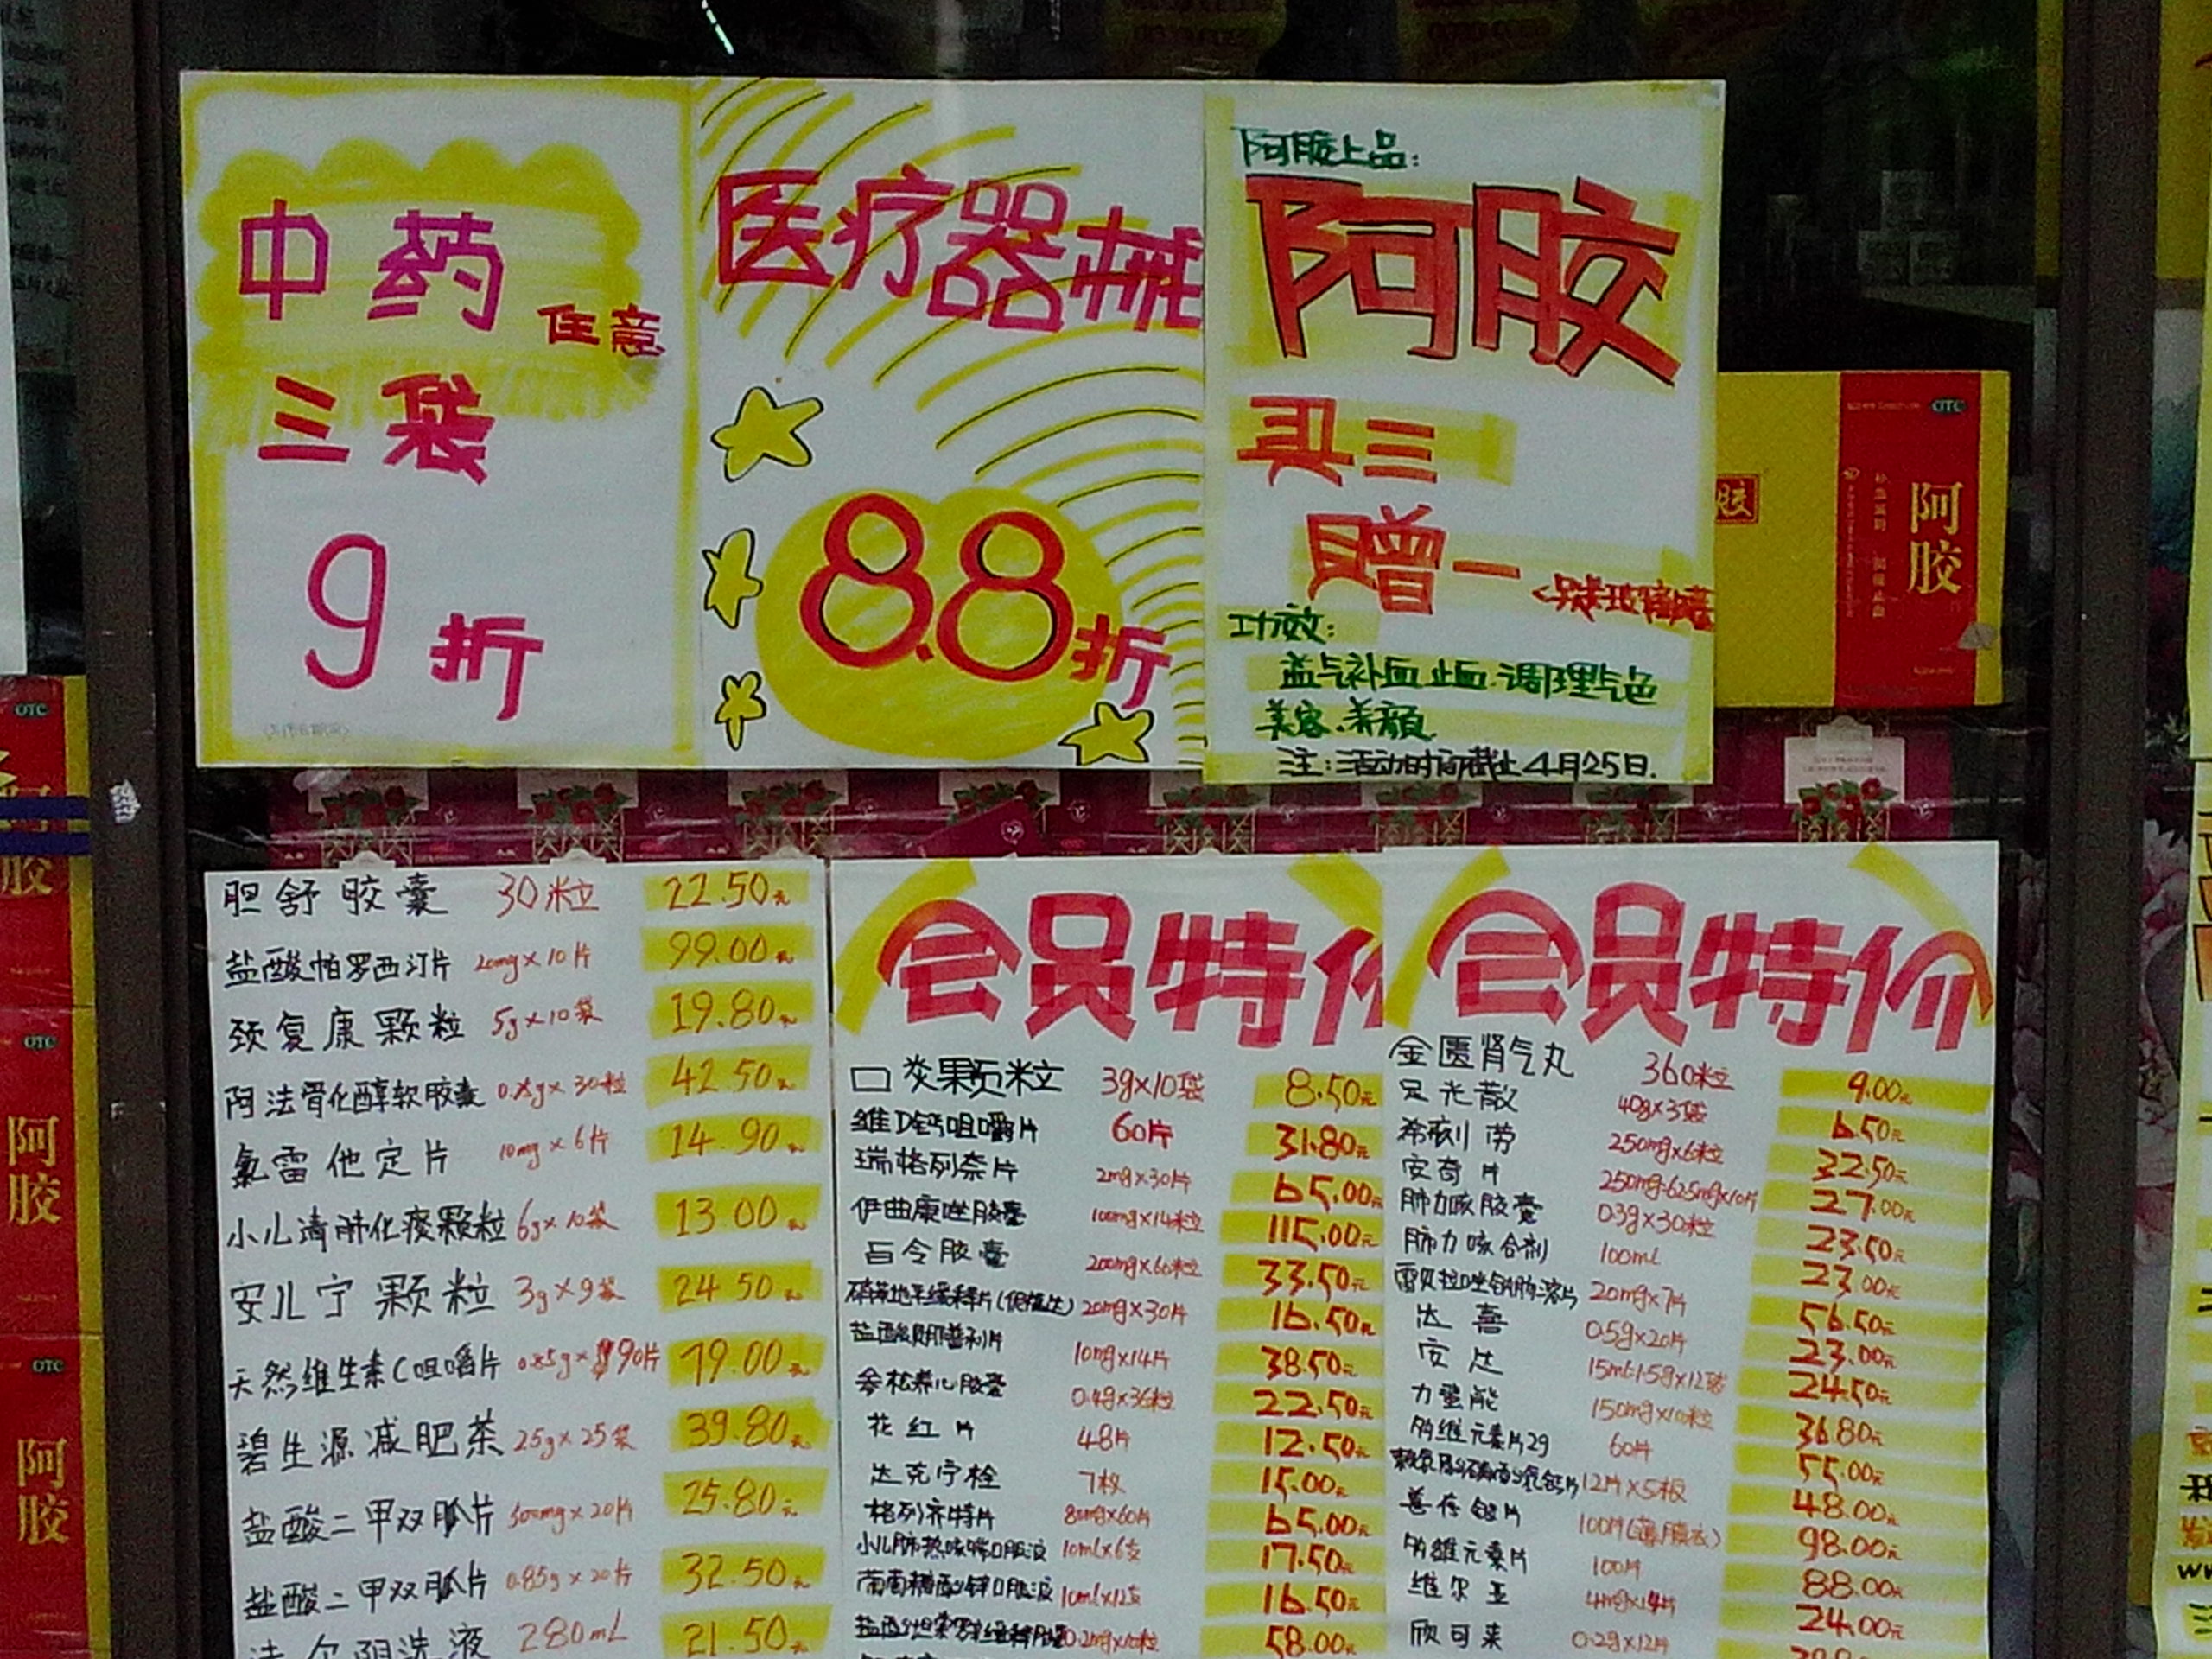 中药 任意
三袋
9折
医疗器械
8.8折
阿胶上品:
阿胶
买三
赠一
功效:
益气补血止血.调理气色
美容.养颜
注:活动时间截止4月25日.
OTC
阿胶
OTC
OTC
阿胶
OTC
阿胶
胆舒胶囊 30粒 22.50元
盐酸帕罗西汀片 20mg×10片 99.00元
颈复康颗粒 5g×10袋 19.80元
阿法骨化醇软胶囊 42.50元
氯雷他定片 10mg×6片 14.90元
小儿清肺化痰颗粒 6g×10袋 13.00元
安儿宁颗粒 3g×9袋 24.50元
天然维生素C咀嚼片 0.85g×90片 79.00元
碧生源减肥茶 25g×25袋 39.80元
盐酸二甲双胍片 20片 25.80元
盐酸二甲双胍片 0.85g×20片 32.50元
洁尔阴洗液 280mL 21.50元
会员特价
口炎颗粒 3g×10袋 8.50元
维D钙咀嚼片 60片 31.80元
瑞格列奈片 2mg×30片 65.00元
伊曲康唑胶囊 100mg×14粒 115.00元
百令胶囊 200mg×60粒 33.50元
硝苯地平缓释片 20mg×30片 16.50元
盐酸贝那普利片 10mg×14片 38.50元
参松养心胶囊 0.4g×36粒 22.50元
花红片 48片 12.50元
达克宁栓 7枚 15.00元
格列齐特片 80mg×60片 65.00元
小儿肺热咳喘口服液 10ml×6支 17.50元
葡萄糖酸锌口服液 10ml×12支 16.50元
盐酸坦索罗辛缓释胶囊 0.2mg×10粒 58.00元
会员特价
金匮肾气丸 360粒 9.00元
足光散 40g×3袋 6.50元
希刻劳 250mg×6粒 32.50元
安奇片 27.00元
肺力咳胶囊 0.3g×30粒 23.50元
肺力咳合剂 100mL 23.00元
雷贝拉唑钠肠溶片 20mg×7片 56.50元
达喜 0.5g×20片 23.00元
安达 15ml:1.5g×12袋 24.50元
力蜚能 150mg×10粒 36.80元
多维元素片29 60片 55.00元
12片×5板 48.00元
善存银片 100片(薄膜衣) 98.00元
多维元素片 100片 88.00元
维尔亚 4mg×14片 24.00元
欣可来 0.2g×12片